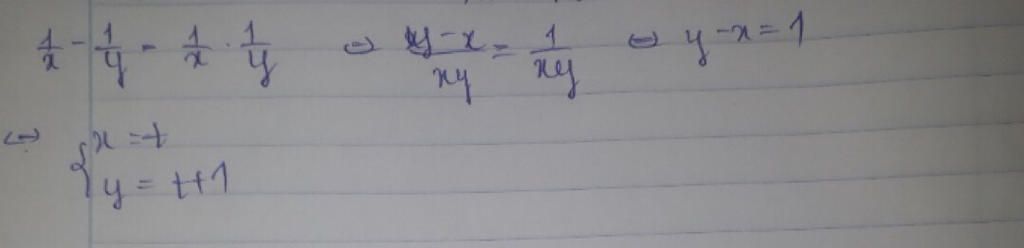 1/x - 1/y = 1/x · 1/y ⇔ y-x/xy = 1/xy ⇔ y-x=1
⇔ { x = t
y = t+1